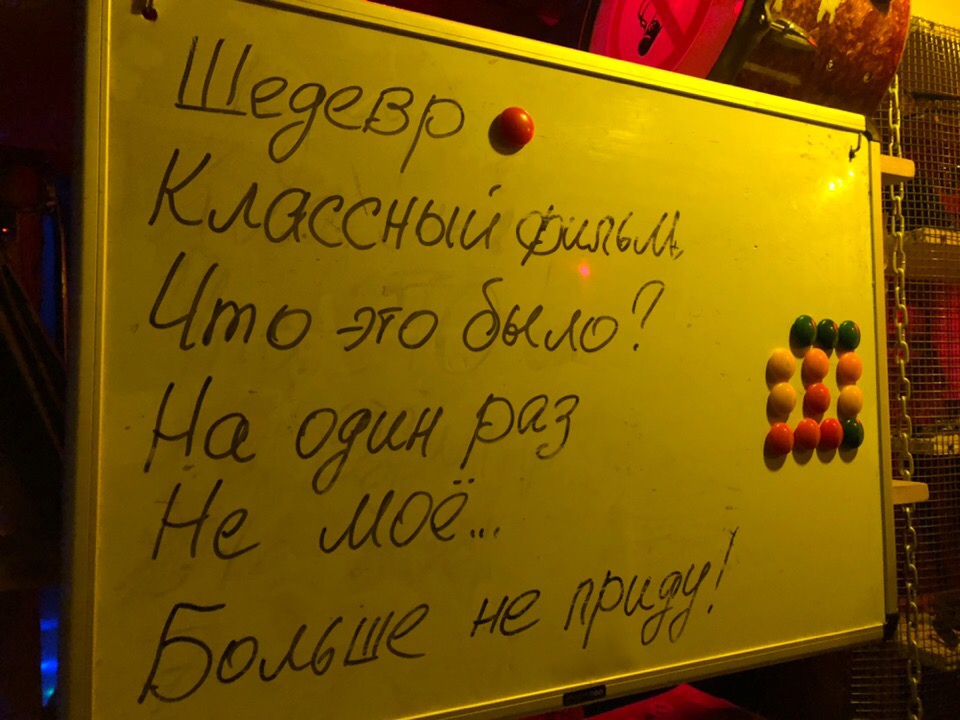 Шедевр
Классный фильм
Что это было?
На один раз
Не моё...
Больше не приду!